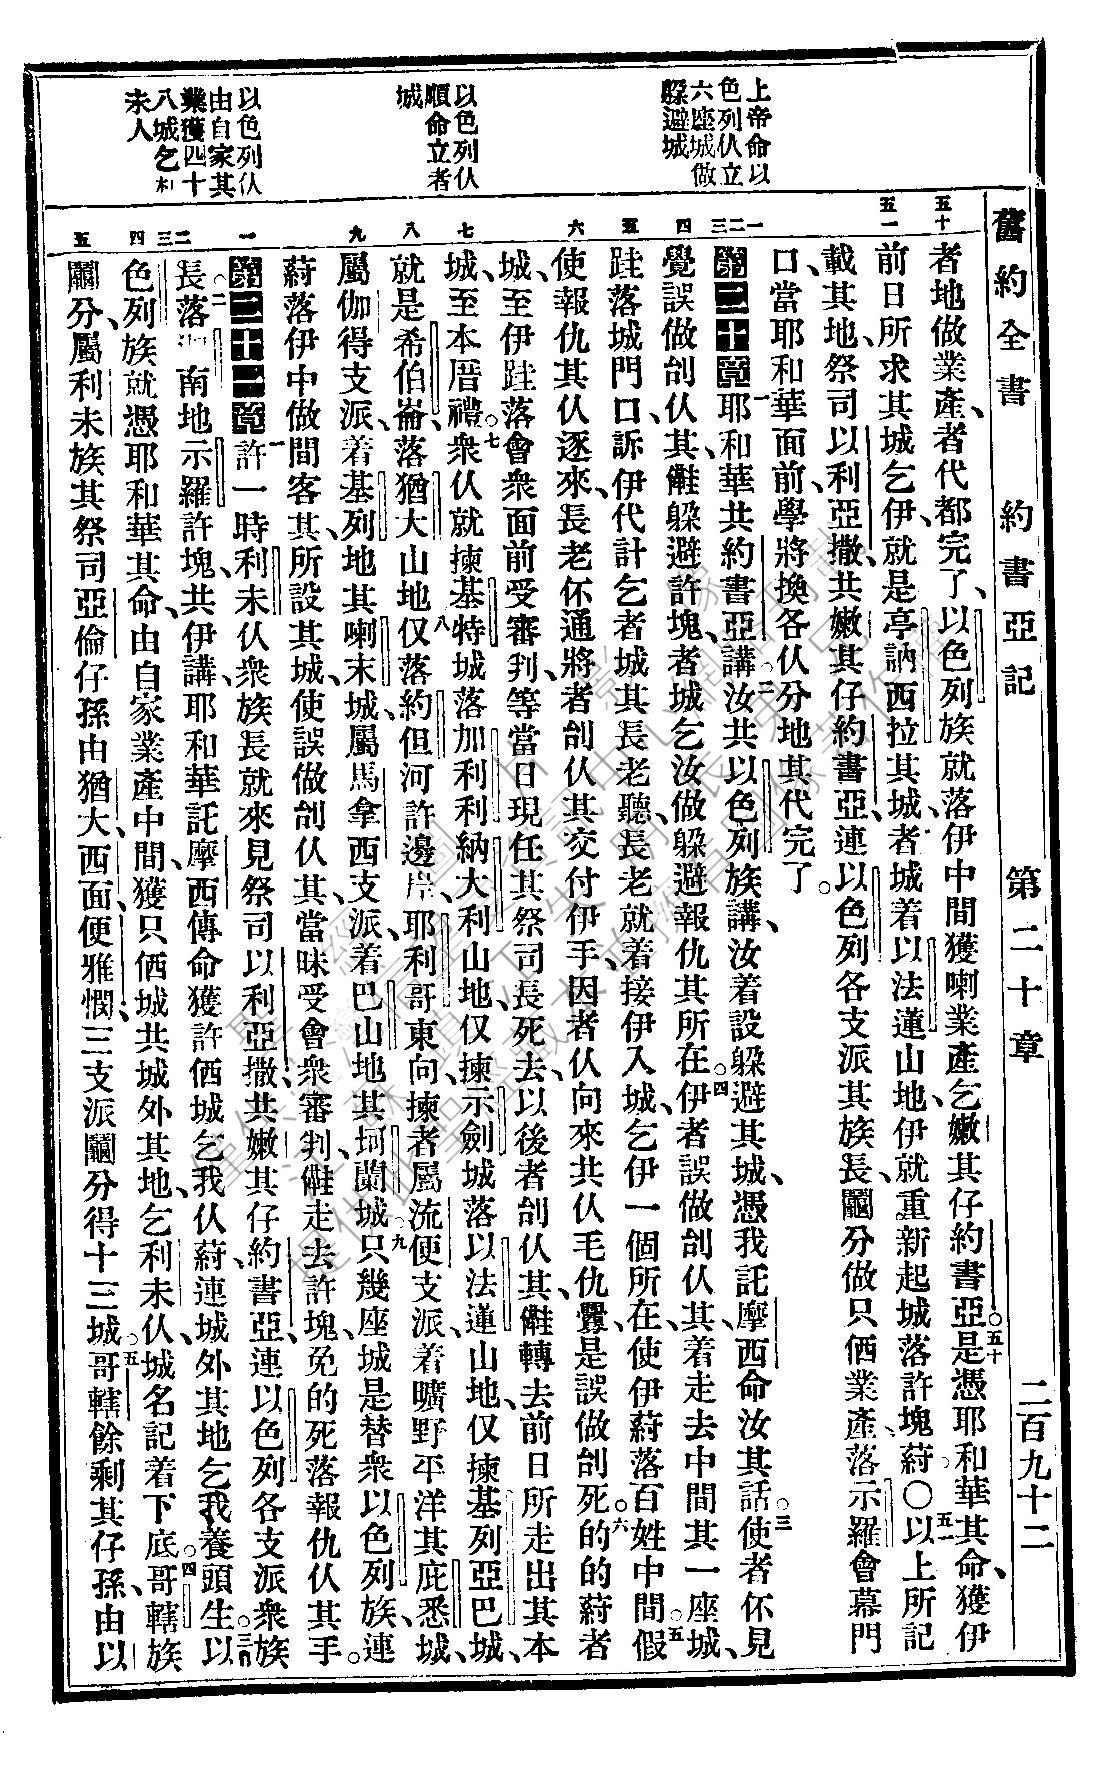 舊約全書 約書亞記 第二十章 二百九十二
上帝命以
色列仈立
六座城做
躲避城
以色列仈
順命立者
城
以色列仈
由自家其
業獲四十
八城乞利
未人
五十
五一
一
二
三
四
五
六
七
八
九
一
二
三
四
五
者地做業產、者代都完了、以色列族就落伊中間獲喇業產乞嫩其仔約書亞。○五十是憑耶和華其命、獲伊
前日所求其城乞伊、就是亭訥西拉其城、者城着以法蓮山地、伊就重新起城落許塊、葤。○五一以上所記
載其地、祭司以利亞撒、共嫩其仔約書亞、連以色列各支派其族長、鬮分做只俩業產、落示羅會幕門
口、當耶和華面前、學將換各仈分地其代完了。
第二十章一耶和華共約書亞講、二汝共以色列族講、汝着設躲避其城、憑我託摩西命汝其話。三使者伓見
覺誤做刣仈其、㑚躲避許塊、者城乞汝做躲避報仇其所在。四伊者誤做刣仈其、着走去中間其一座城、
跬落城門口、訴伊代計乞者城其長老聽、長老就着接伊入城、乞伊一個所在、使伊葤落百姓中間。五假
使報仇其仈逐來、長老伓通將者刣仈其交付伊手、因者仈向來共仈毛仇釁、是誤做刣死的的。六葤者
城、至伊跬落會眾面前受審判、等當日現任其祭司長死去、以後者刣仈其、㑚轉去前日所走出其本
城、至本厝禮。七眾仈就揀基特城落加利利納大利山地、仅揀示劍城落以法蓮山地、仅揀基列亞巴城、
就是希伯崙、落猶大山地。八仅落約但河許邊岸、耶利哥東向、揀者屬流便支派、着曠野平洋其庇悉城、
屬伽得支派、着基列地其喇末城、屬馬拿西支派、着巴山地其坷蘭城。九只幾座城是替眾以色列族、連
葤落伊中做間客其、所設其城、使誤做刣仈其、當昧受會眾審判、㑚走去許塊、免的死落報仇仈其手。
第二十一章一許一時利未仈眾族長、就來見祭司以利亞撒、共嫩其仔約書亞、連以色列各支派眾族
長、二落迦南地示羅許塊、共伊講、耶和華託摩西傳命、獲許俩城乞我仈葤、連城外其地乞我養頭生。三以
色列族就憑耶和華其命、由自家業產中間、獲只俩城共城外其地、乞利未仈、城名記着下底。四哥轄族
鬮分、屬利未族其祭司亞倫仔孫、由猶大、西面、便雅憫、三支派、鬮分得十三城。五哥轄餘剩其仔孫、由以